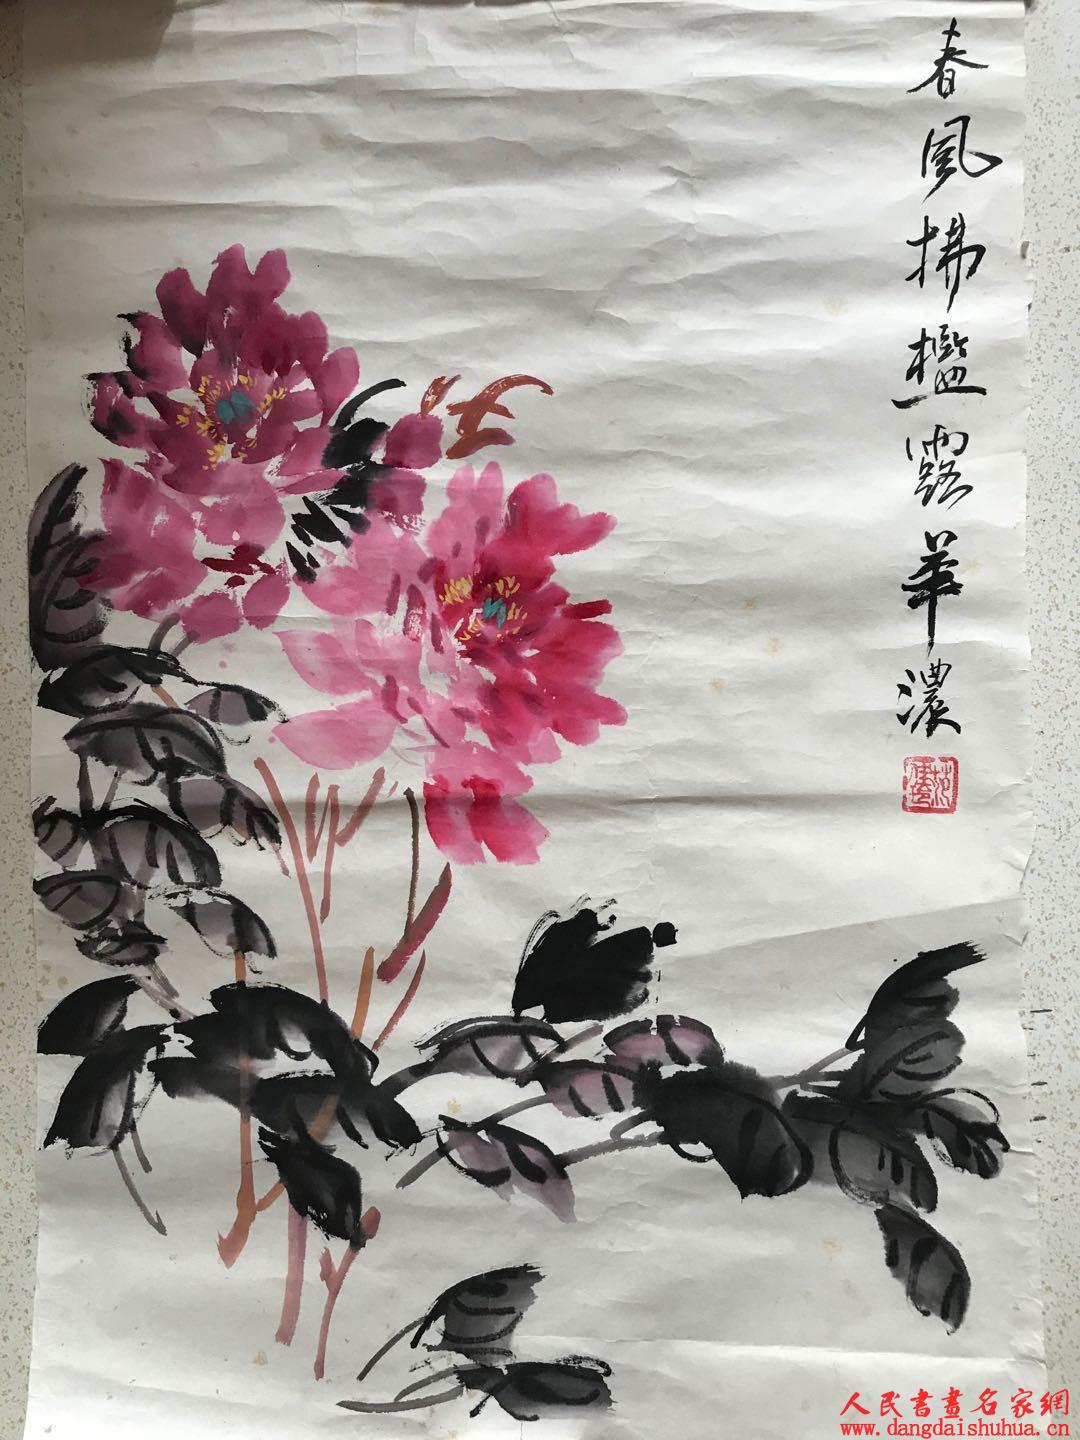 春風拂檻露華濃
人民書畫名家網
www.dangdaishuhua.cn